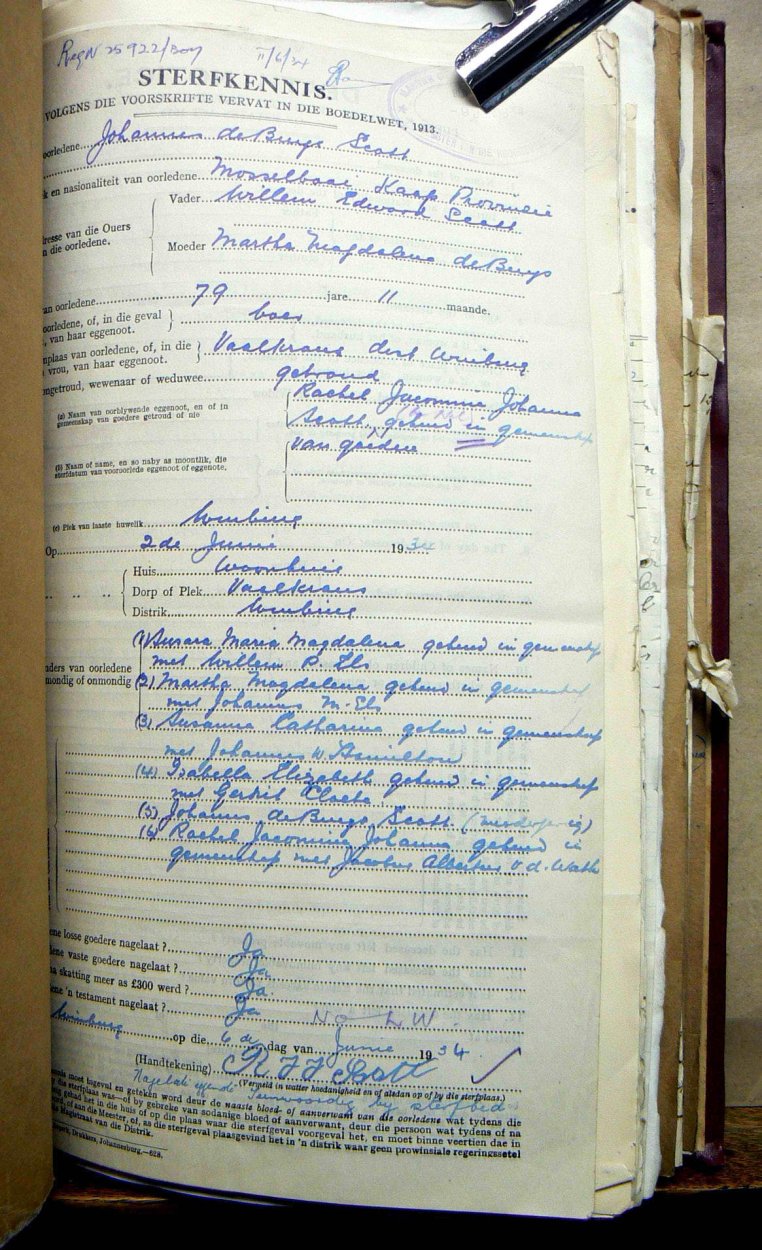 Reg N 25922/Boy 11/6/34
STERFKENNIS.
VOLGENS DIE VOORSKRIFTE VERVAT IN DIE BOEDELWET, 1913.
oorledene Johannes de Buys Scott
k en nasionaliteit van oorledene Mosselbaai Kaap Provinsie
Vader Willem Edward Scott
resse van die Ouers
n die oorledene.
Moeder Martha Magdalena de Buys
an oorledene 79 jare 11 maande.
oorledene, of, in die geval
, van haar eggenoot. boer
nplaas van oorledene, of, in die
vrou, van haar eggenoot. Vaalkrans dist Winburg
ongetroud, wewenaar of weduwee getroud
(a) Naam van oorblywende eggenoot, en of in
gemeenskap van goedere getroud of nie
Rachel Jacomina Johanna
Scott, gehuud in gemeenskap
van goedere
(b) Naam of name, en so naby as moontlik, die
sterfdatum van vooroorlede eggenoot of eggenote.
(c) Plek van laaste huwelik Winburg
Op 2de Junie 1934
Huis Woonhuis
Dorp of Plek Vaalkrans
Distrik Winburg
(1) Maria Magdalena gehuud in gemeenskap
met Willem P. Els
nders van oorledene
mondig of onmondig
(2) Martha Magdalena gehuud in gemeenskap
met Johannes M. Els
(3) Susanna Catharina gehuud in gemeenskap
met Johannes W Hamilton
(4) Isabella Elizabeth gehuud in gemeenskap
met Gerhit Cloete
(5) Johannes de Buys Scott (minderjarig)
(6) Rachel Jacomina Johanna gehuud in
gemeenskap met Jacobus Albertus v.d. Wath
ene losse goedere nagelaat ? Ja
lene vaste goedere nagelaat ? Ja
a skatting meer as £300 werd ? Ja
ene 'n testament nagelaat ? Ja
No L.W.
Winburg op die 6 de dag van Junie 1934
(Handtekening) R J J Scott
(Vermeld in watter hoedanigheid en of aledan op of by die sterfplaas.)
Nagelate eggenote Teenwoordig by sterfbed
ennis moet ingevul en geteken word deur de naaste bloed- of aanverwant van die oorledene wat tydens die
die sterfplaas was—of by gebreke van sodanige bloed of aanverwant, deur die persoon wat tydens of na
gehad het in die huis of op die plaas waar die sterfgeval voorgeval het, en moet binne veertien dae in
of aan die Meester, of, as die sterfgeval plaasgevind het in 'n distrik waar geen provinsiale regeringssetel
Magistraat van die Distrik.
Drukkers, Johannesburg.—628.